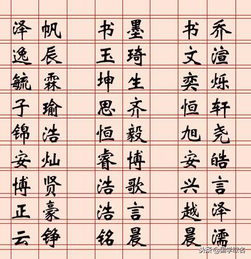 泽帆 书墨 书乔
逸辰 玉琦 文渲
毓霖 坤生 奕烁
子瑜 思齐 恒轩
锦浩 恒毅 旭尧
安灿 睿博 安皓
博贤 浩歌 兴言
正豪 浩言 越泽
云铮 铭晨 晨濡
头条@国学取名